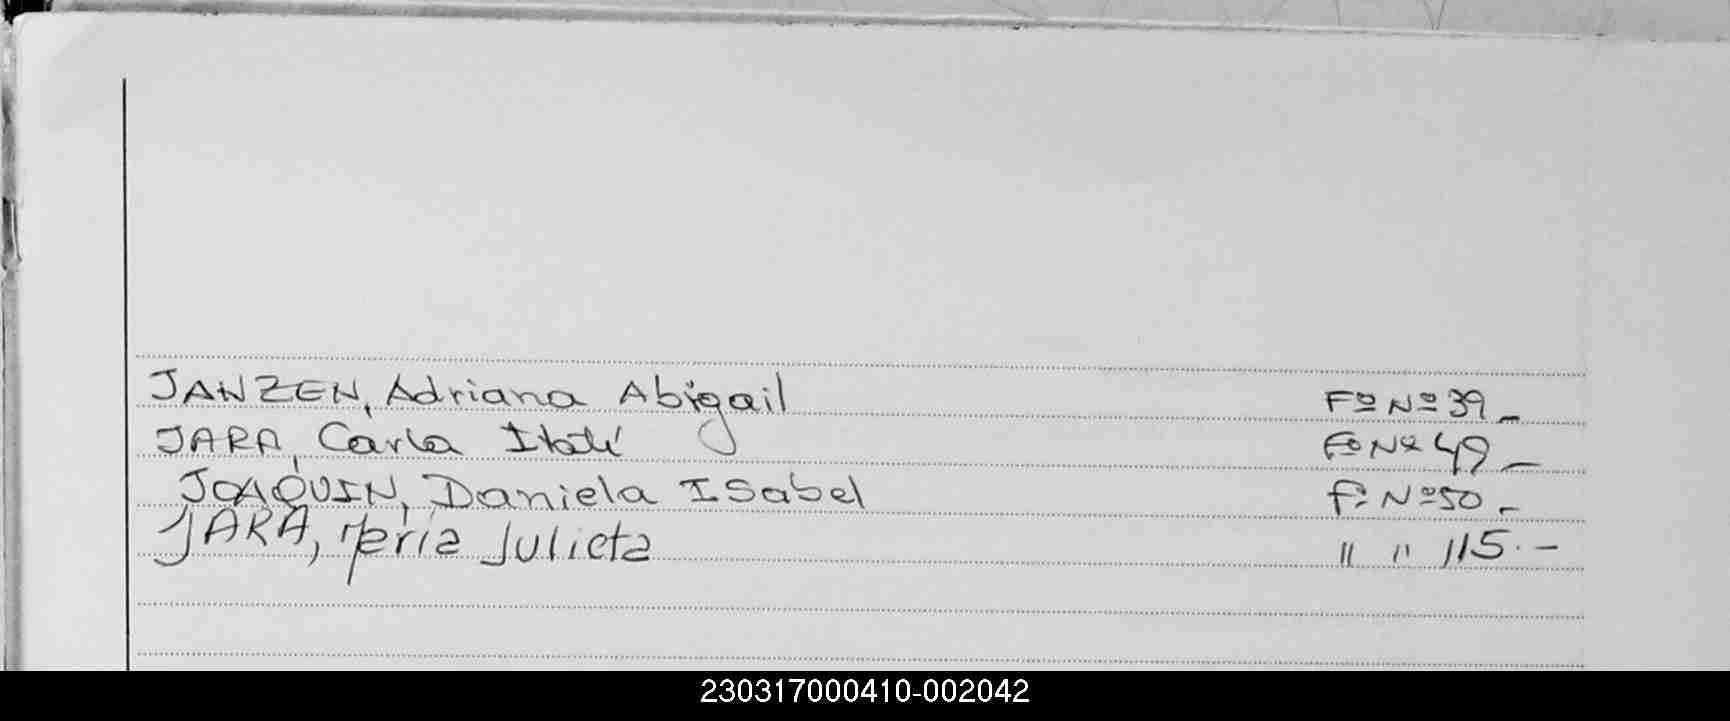 JANZEN, Adriana Abigail Fº Nº 39_
JARA, Carla Itatí Fº Nº 49_
JOAQUIN, Daniela ISabel fº Nº 50_
JARA, María Julieta " " 115.-
230317000410-002042